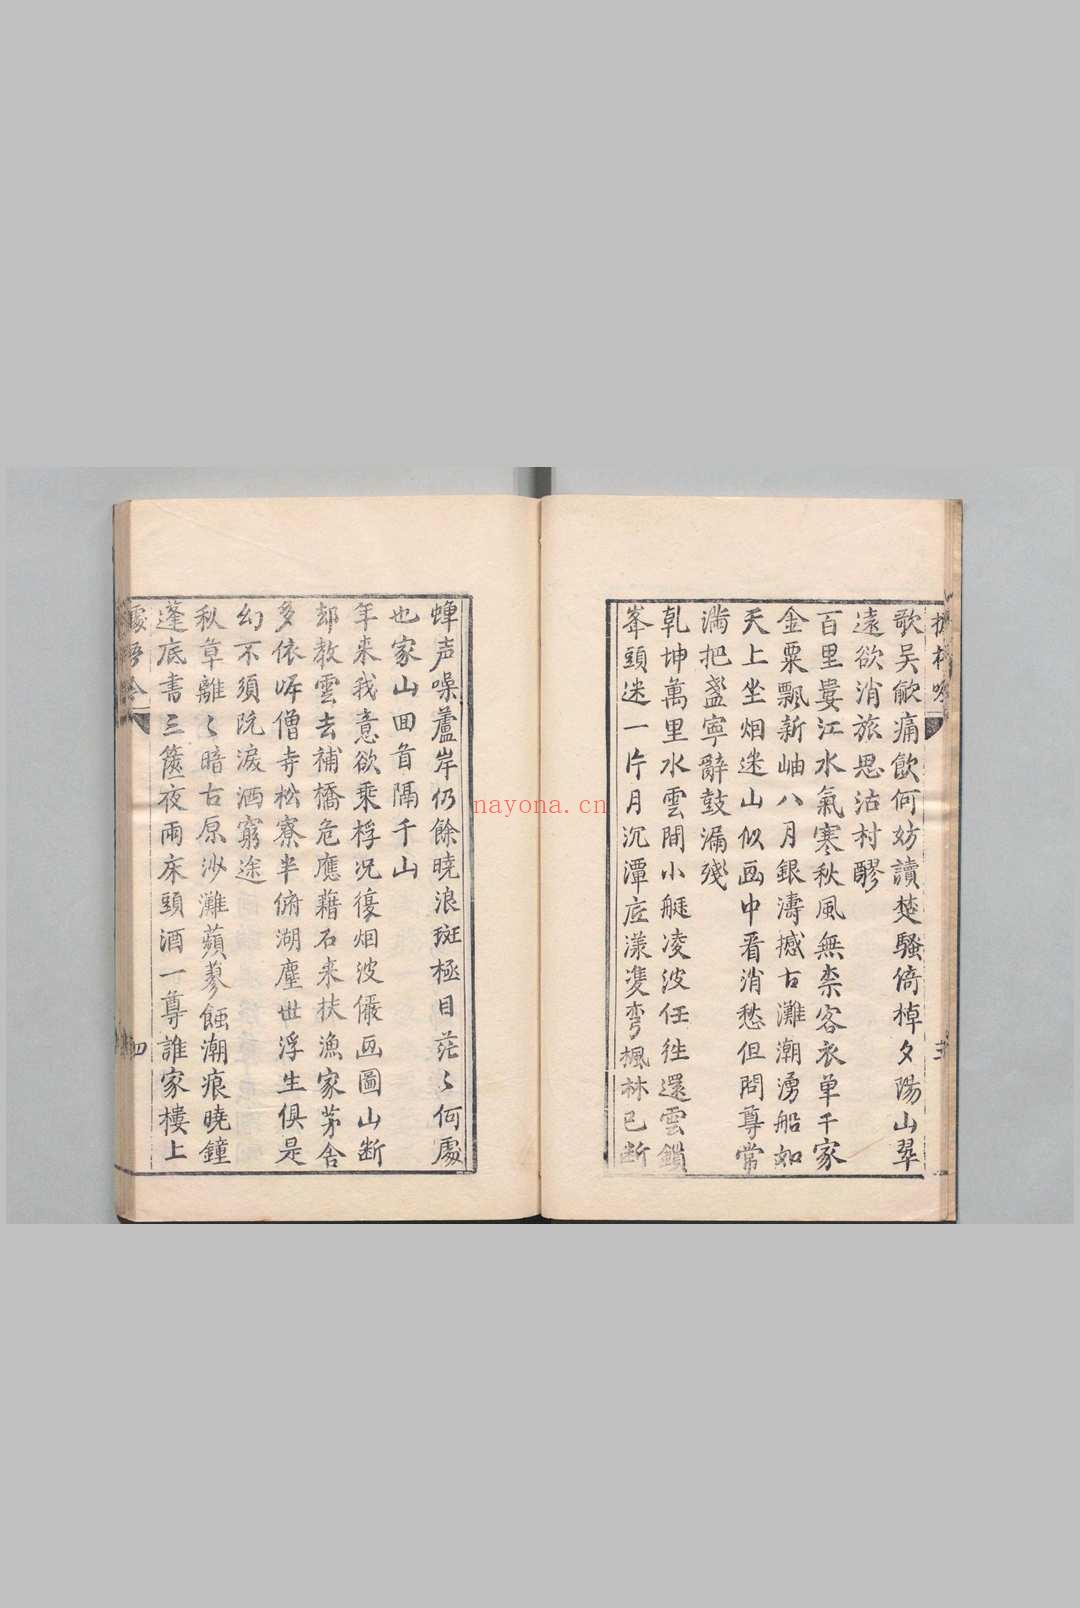 歌吴歈痛飲何妨讀楚騷倚棹夕陽山翠
遠欲消旅思沽村醪
百里婁江水氣寒秋風無柰客衣单千家
金粟飄新岫八月銀濤撼古灘潮湧船如
天上坐烟迷山似画中看消愁但問尊常
满把盞寧辭鼓漏殘
乾坤萬里水雲間小艇凌波任徃還雲鎖
峯頭迷一片月沉潭底漾雙彎楓林已断
蟬声噪蘆岸仍餘曉浪斑極目茫〻何處
也家山回首隔千山
年来我意欲乗桴况復烟波儼画圖山断
却教雲去補橋危應藉石来扶漁家茅舍
多依㟁僧寺松寮半俯湖塵世浮生俱是
幻不須阮淚洒窮途
秋草離〻暗古原沙灘蘋蓼蝕潮痕曉鐘
蓬底書三篋夜雨床頭酒一尊誰家樓上
四
nayona.cn